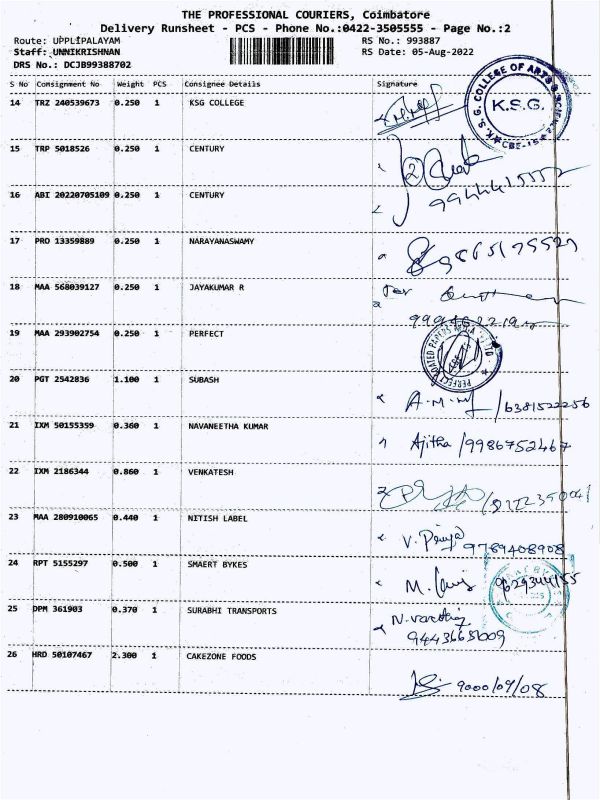 THE PROFESSIONAL COURIERS, Coimbatore
Delivery Runsheet - PCS - Phone No.:0422-3505555 - Page No.:2
Route: UPPLIPALAYAM RS No.: 993887
Staff: UNNIKRISHNAN RS Date: 05-Aug-2022
DRS No.: DCJB99388702
S No Consignment No Weight PCS Consignee Details Signature
14 TRZ 240539673 0.250 1 KSG COLLEGE
K.S.G. COLLEGE OF ARTS & SCIENCE
K.S.G.
CBE-15
15 TRP 5018526 0.250 1 CENTURY
16 ABI 20220705109 0.250 1 CENTURY
17 PRO 13359889 0.250 1 NARAYANASWAMY
18 MAA 568039127 0.250 1 JAYAKUMAR R
19 MAA 293902754 0.250 1 PERFECT
20 PGT 2542836 1.100 1 SUBASH
A.M. /6381522256
21 IXM 50155359 0.360 1 NAVANEETHA KUMAR
Ajitha /9986752467
22 IXM 2186344 0.860 1 VENKATESH
23 MAA 280910065 0.440 1 NITISH LABEL
V. Priya 9789408908
24 RPT 5155297 0.500 1 SMAERT BYKES
M. 9629344155
25 DPM 361903 0.370 1 SURABHI TRANSPORTS
9443665009
26 HRD 50107467 2.300 1 CAKEZONE FOODS